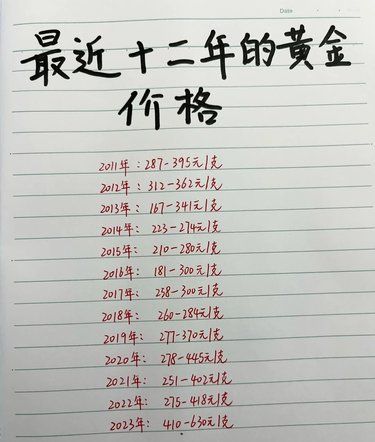 Date
最近十二年的黄金
价格
2011年：287-395元/克
2012年：312-362元/克
2013年：167-341元/克
2014年：223-274元/克
2015年：210-280元/克
2016年：181-300元/克
2017年：258-300元/克
2018年：260-284元/克
2019年：277-370元/克
2020年：278-445元/克
2021年：251-402元/克
2022年：275-418元/克
2023年：410-630元/克